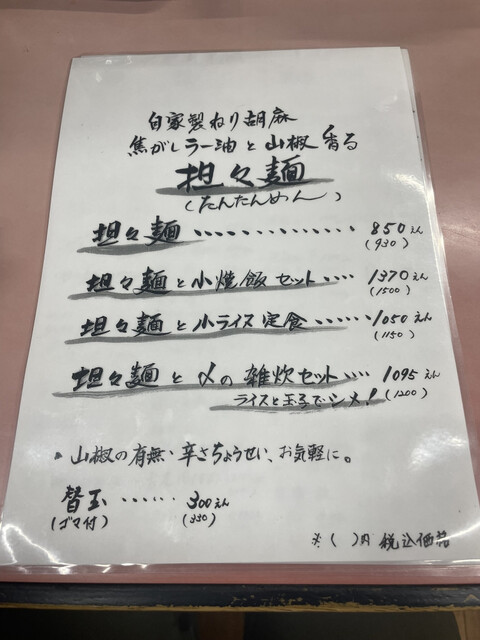 自家製ねり胡麻
焦がしラー油と山椒香る
担々麺
(たんたんめん)
担々麺 ・・・・・・・・・・・・・ 850えん
(930)
担々麺と小焼飯セット・・・・ 1370えん
(1500)
担々麺と小ライス定食・・・・・・ 1050えん
(1150)
担々麺と〆の雑炊セット・・・・ 1095えん
ライスと玉子でシメ! (1200)
▸ 山椒の有無・辛さちょうせい、お気軽に。
替玉 ・・・・・・ 300えん
(ゴマ付) (330)
※( )内 税込価格